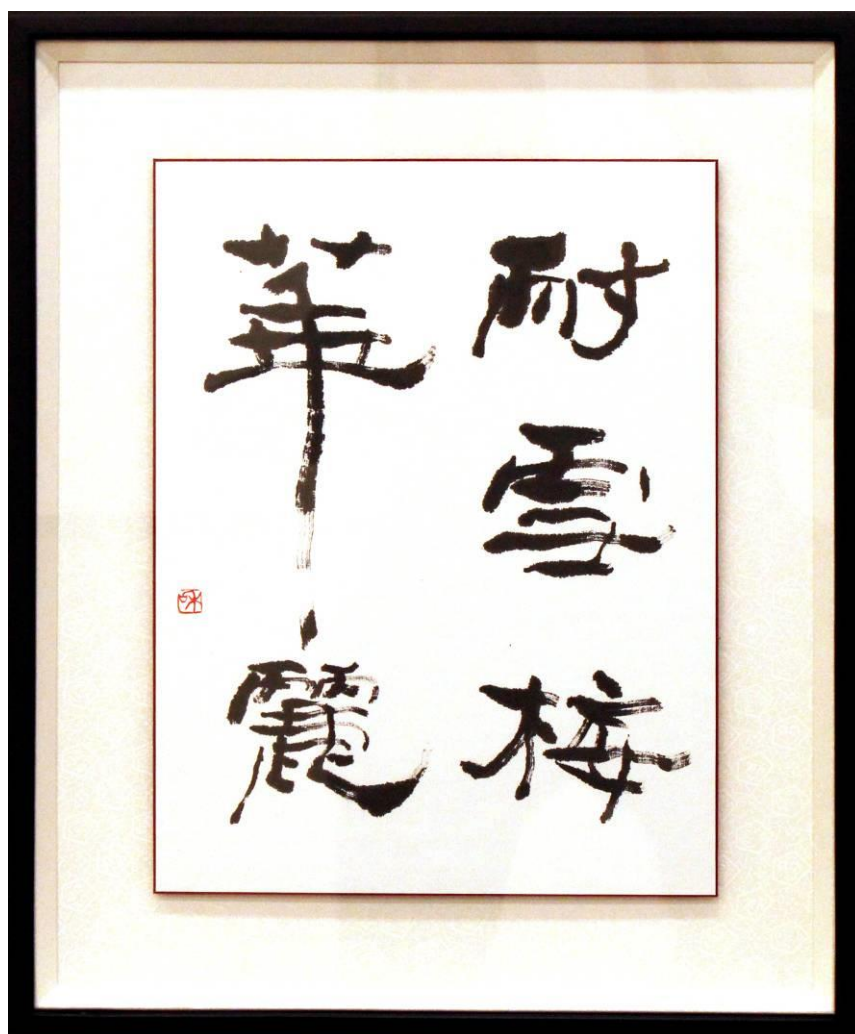 耐雪梅
華麗